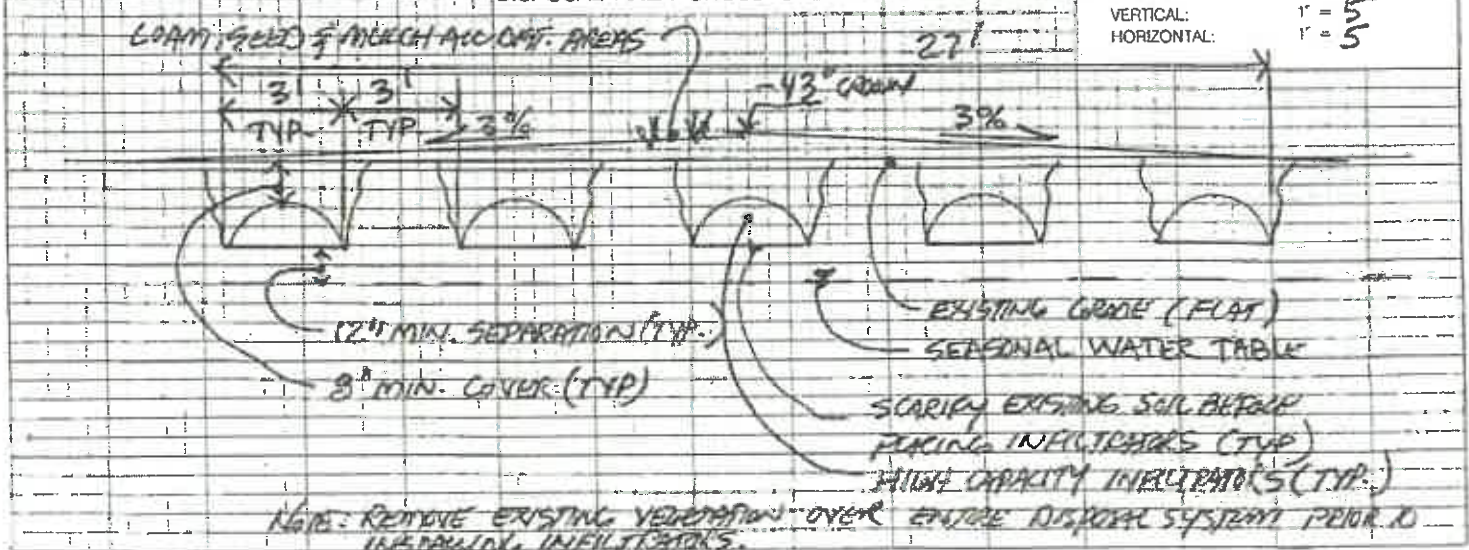 VERTICAL: 1" = 5
HORIZONTAL: 1" = 5
LOAM, SEED & MULCH ALL DIST. AREAS
27'
3' 3'
TYP. TYP.
3%
-43" CROWN
3%
12" MIN. SEPARATION (TYP.)
8" MIN. COVER (TYP)
EXISTING GRADE (FLAT)
SEASONAL WATER TABLE
SCARIFY EXISTING SOIL BEFORE
PLACING INFILTRATORS (TYP)
HIGH CAPACITY INFILTRATORS (TYP.)
NOTE: REMOVE EXISTING VEGETATION OVER ENTIRE DISPOSAL SYSTEM PRIOR TO
INSTALLING INFILTRATORS.